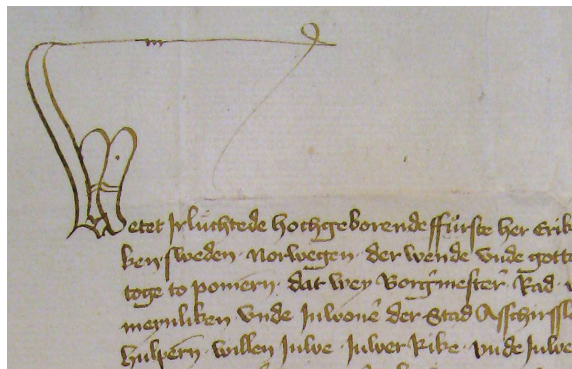 Wetet Irluchtede hochgeborende ffurste her Erik
ken sweden · Norwegen · der wende vnde gotte
toge to pomern · dat wer Borgmester Rad ·
meynliken vnde Inwone der Stad Asschirssl
hulpern · willen Juwe · Juwer Rike · vnde Juwe